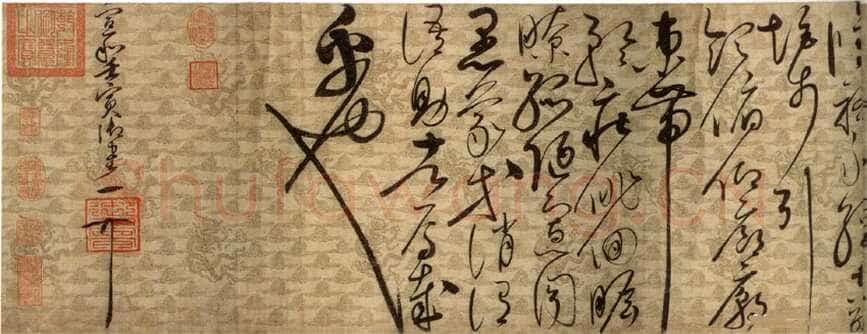 矩步引
領俯仰廊廟
束帶
矜莊徘徊瞻
眺孤陋寡聞
愚蒙等誚謂
語助者焉哉
乎也
宣和壬寅御書
shufawang.cn